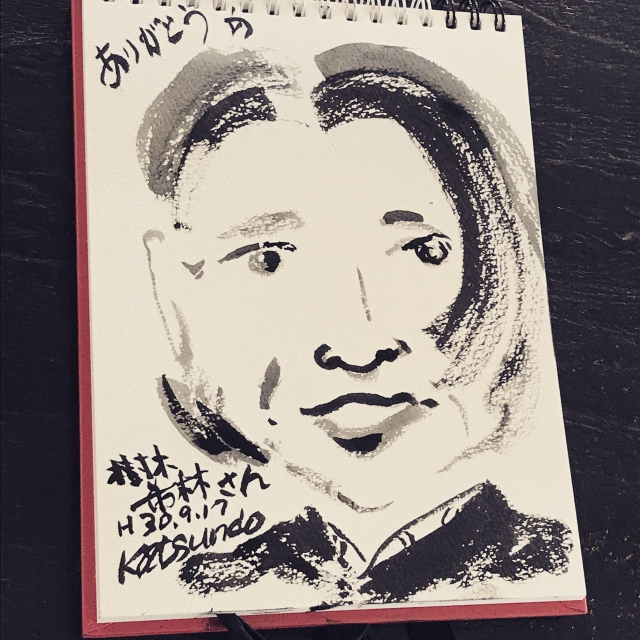 ありがとう
樹木
希林さん
H30.9.17
Katsundo